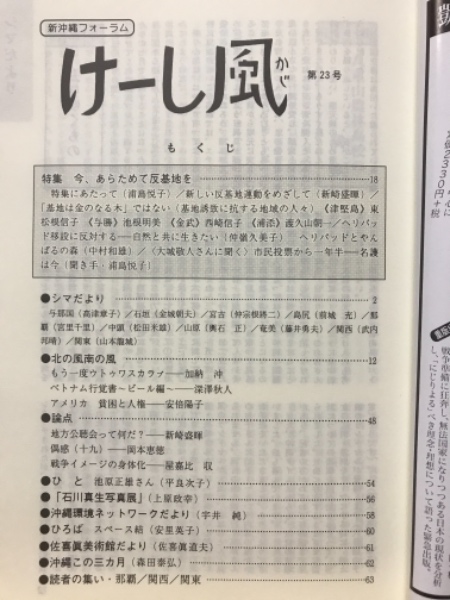 新沖縄フォーラム
けーし風
かじ
第23号
もくじ
特集 今、あらためて反基地を 18
特集にあたって（浦島悦子）／新しい反基地運動をめざして（新崎盛暉）／
「基地は金のなる木」ではない（基地誘致に抗する地域の人々）《津堅島》東
松根信子 《与勝》池根明美 《金武》西崎信子 《浦添》渡久山朝一／ヘリパッ
ド移設に反対する――自然と共に生きたい（仲嶺久美子） ヘリパッドとやん
ばるの森（中村和雄）／〈大城敬人さんに聞く〉市民投票から一年半――名護
は今（聞き手・浦島悦子）
●シマだより 2
与那国（高津章子）／石垣（金城朝夫）／宮古（仲宗根將二）／島尻（前城 充）／那
覇（宮里千里）／中頭（松田米雄）／山原（輿石 正）／奄美（藤井勇夫）／関西（武内
邦晴）／関東（山本龍城）
●北の風南の風 12
もう一度ウトゥワスカラァ――加納 沖
ベトナム行覚書～ビール編～――深澤秋人
アメリカ 貧困と人権――安倍陽子
●論点 48
地方公聴会って何だ？――新崎盛暉
偶感（十九）――岡本恵徳
戦争イメージの身体化――屋嘉比 収
●ひと 池原正雄さん（平良次子） 54
●「石川真生写真展」（上原政幸） 56
●沖縄環境ネットワークだより（宇井 純） 58
●ひろば スペース結（安里英子） 60
●佐喜眞美術館だより（佐喜眞道夫） 61
●沖縄この三カ月（森田泰弘） 62
●読者の集い・那覇／関西／関東 63
2330円＋税
戦争準備に狂奔し、無法国家になりつつある日本の現状を分析
し、「にじりよる」べき理念・理想について語った緊急出版。